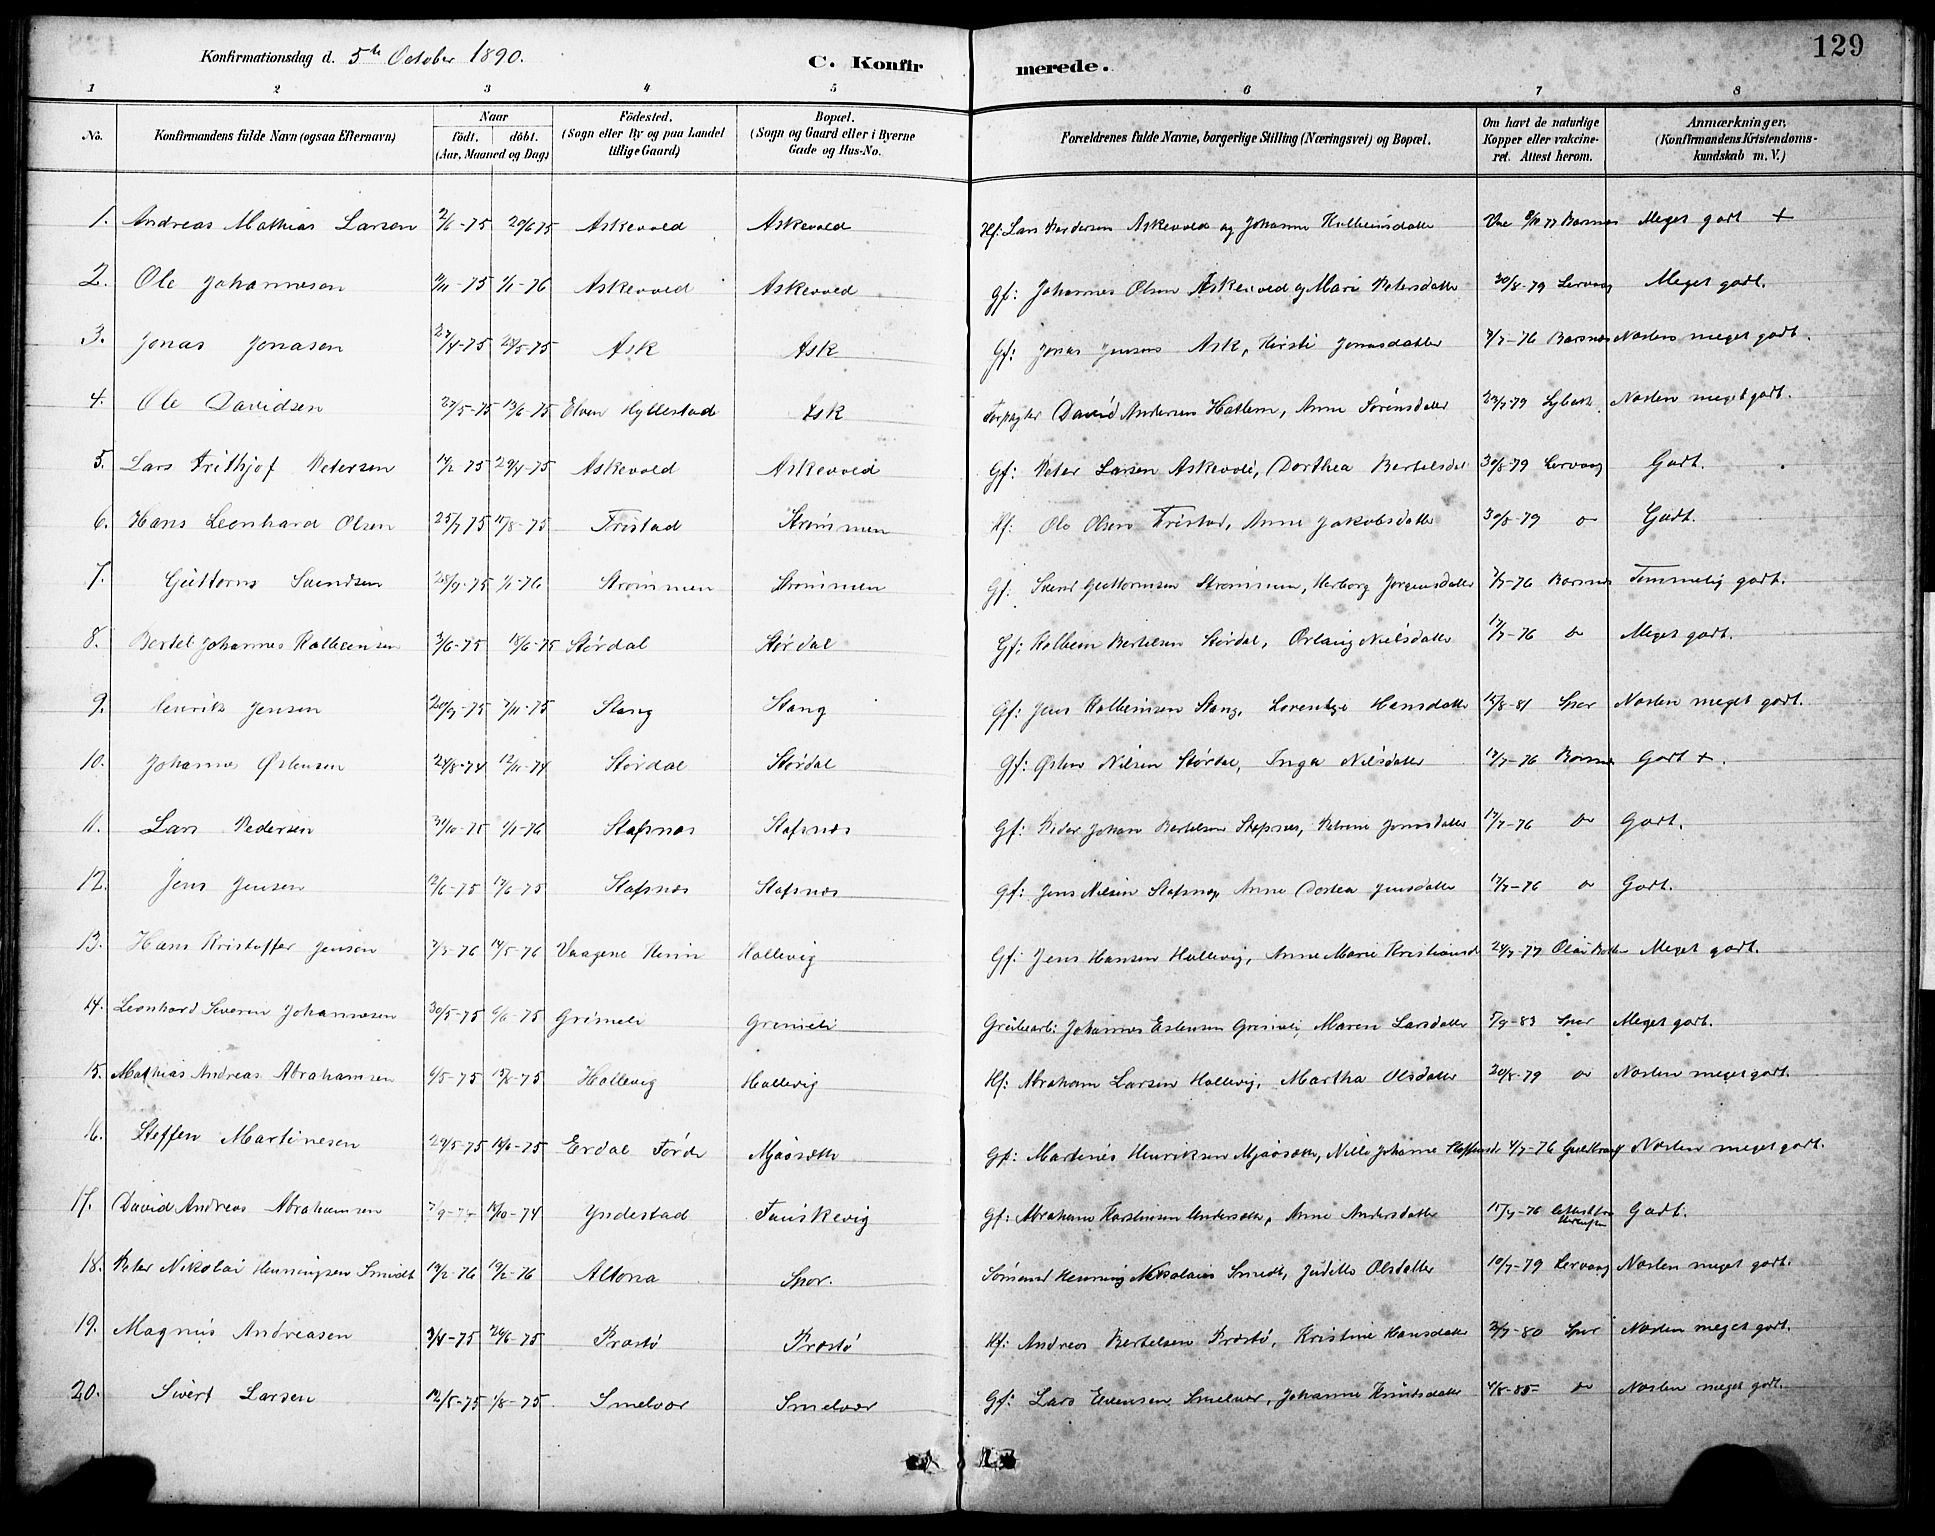 129
Konfirmationsdag d. 5th October 1890. C. Konfirmerede.
1 2 3 4 5 6 7 8
No. Konfirmandens fulde Navn (ogsaa Efternavn) Naar födt. döbt. (Aar, Maaned og Dag) Födested. (Sogn eller By og paa Landet tillige Gaard) Bopæl. (Sogn og Gaard eller i Byerne Gade og Hus-No. Forældrenes fulde Navne, borgerlige Stilling (Næringsvei) og Bopæl. Om havt de naturlige Kopper eller vakcineret. Attest herom. Anmærkninger, (Konfirmandens Kristendomskundskab m. V.)
1. Andreas Mathias Larsen 2/6-75 20/6 75 Askevold Askevold Hf: Lars Askevold og Johanne Meget godt +
2. Ole Johannesen 75 1/1-76 Askevold Askevold Gf: Johannes Olsen Askevold og Mari Petersdatter 30/8-79 Lervaag Meget godt.
3. Jonas Jonasen 27/4-75 75 Ask Ask Gf: Jonas Jensen Ask, Kirsti Jonasdatter 76 Barsnes Næsten meget godt.
4. Ole Davidsen 27/5-75 13/6-75 Elven Hyllestad Ask Forpagter David Andersen Hatlem, Anne Sørensdatter 79 Næsten meget godt.
5. Lars Frithjof Petersen 75 29/4-75 Askevold Askevold Gf: Peter Larsen Askevold, Dorthea Bertelsdat 30/8-79 Lervaag Godt.
6. Hans Leonhard Olsen 25/7 75 75 Fristad Strømmen Hf: Ole Olsen Fristad, Anne Jakobsdatter 30/8-79 do Godt.
7. Guttorm Svendsen 75 1/1-76 Strømmen Strømmen Gf: Svend Guttormsen Strømmen, Herborg Jørgensdatter 76 Barsnes Temmelig godt.
8. Bertel Johannes Kolbeensen 3/6-75 18/6-75 Størdal Størdal Gf: Kolbeen Bertelsen Størdal, Nielsdatter 17/7-76 do Meget godt.
9. Henrik Jensen 20/9-75 7/11-75 Stang Stang Gf: Jens Kolbeinsen Stang, Lorentse Hansdatter 81 Spor Næsten meget godt.
10. Johannes Østensen 24/8-74 74 Størdal Størdal Gf: Østen Nilsen Størdal, Inga Nilsdatter 17/7-76 Barsnes Godt +.
11. Lars Pedersen 75 1/1-76 Stafsnes Stafsnes Gf: Peder Johan Bertelsen Stafsnes, Petrine Jonasdatter 17/7-76 do Godt.
12. Jens Jensen 75 75 Stafsnes Stafsnes Gf: Jens Nilsen Stafsnes, Anne Dortea Jensdatter 17/7-76 do Godt.
13. Hans Kristoffer Jensen 76 14/5-76 Vaagene Kinn Hollevig Gf: Jens Hansen Hollevig, Anne Marie Kristiansd 77 Meget godt.
14. Leonhard Severin Johannesen 30/5-75 6/6-75 Grimeli Grimeli Johannes Estensen Grimeli, Maren Larsdatter 5/9-83 Spor Meget godt.
15. Mathias Andreas Abrahamsen 6/5-75 75 Hollevig Hollevig Hf: Abraham Larsen Hollevig, Martha Olsdatter 20/8-79 do Næsten meget godt.
16. Steffen Martinesen 29/5-75 75 Erdal Førde Mjaasætter Gf: Martines Henriksen Mjaasætter, Nille Johanne 76 Næsten meget godt.
17. David Andreas Abrahamsen 74 Yndestad Fauskevig Gf: Abraham Karstensen, Anne Andersdatter 76 Godt.
18. Peter Nikolai Henningsen Smidt 76 76 Altona Spor. Sømand Henning Nikolaus Smidt, Judithe Olsdatter 10/7-79 Lervaag Næsten meget godt.
19. Magnus Andreasen 75 20/6-75 Præstø Præstø Hf: Andreas Bertelsen Præstø, Kristine Hansdatter 80 Spor Næsten meget godt.
20. Sivert Larsen 12/5-75 1/8-75 Smelvær Smelvær Gf: Lars Evensen Smelvær, Johanne Knutsdatter 85 do Næsten meget godt.